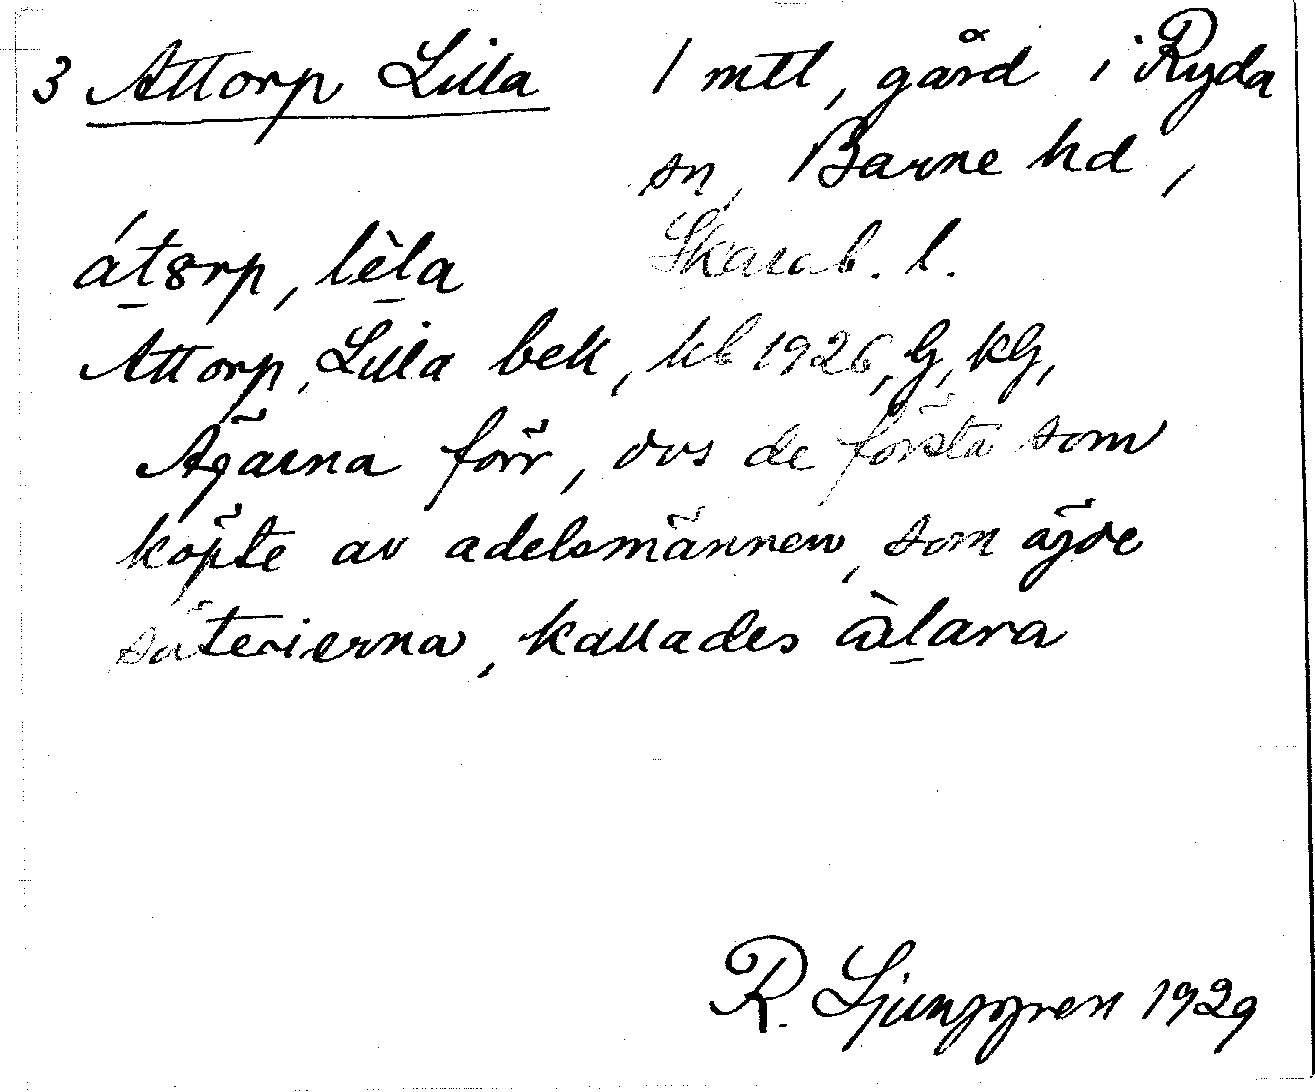 3 Attorp Lilla 1 mtl, gård i Ryda
sn, Barne hd,
át̠8rp, lèl̠a Skarab. l.
Attorp, Lilla bek, kb 1926, G, kG,
Ägarna förr, dvs de första som
köpte av adelsmännen, som ägde
säterierna, kallades àl̠ara
R. Ljunggren 1929